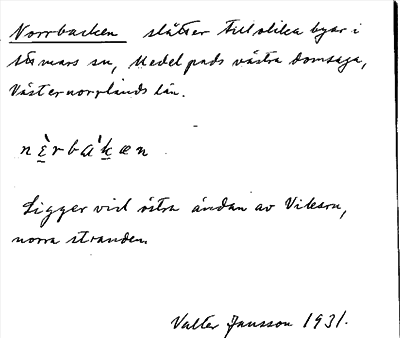 Norrbacken slåtter till olika byar i
Stömars sn, Medelpads västra domsaga,
Västernorrlands län.
nèrbákæn
Ligger vid östra ändan av Viksen,
norra stranden.
Valter Jansson 1931.